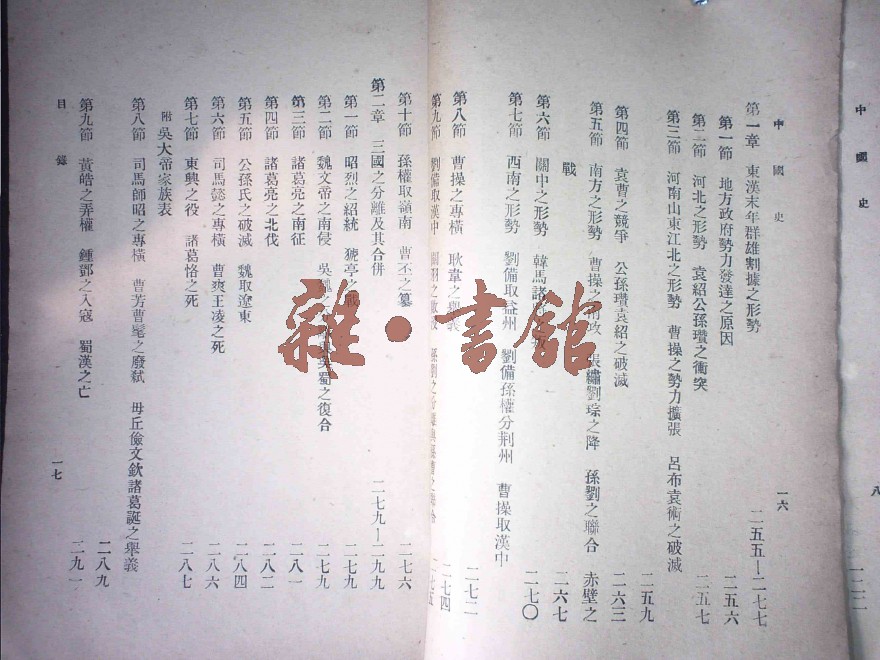 中國史
八
中國史
一六
第一章 東漢末年群雄割據之形勢 二五五—二七七
第一節 地方政府勢力發達之原因 二五六
第二節 河北之形勢 袁紹公孫瓚之衝突 二五七
第三節 河南山東江北之形勢 曹操之勢力擴張 呂布袁術之破滅 二五九
第四節 袁曹之競爭 公孫瓚袁紹之破滅 二六三
第五節 南方之形勢 曹操之南攻 張繡劉琮之降 孫劉之聯合 赤壁之
戰 二六七
第六節 關中之形勢 韓馬諸 二七〇
第七節 西南之形勢 劉備取益州 劉備孫權分荆州 曹操取漢中 二七二
第八節 曹操之專橫 耿韋之舉義 二七四
第九節 劉備取漢中 關羽之敗 孫劉之分離與孫曹之 二七五
第十節 孫權取嶺南 曹丕之篡 二七六
第二章 三國之分離及其合併 二七九—二九九
第一節 昭烈之紹統 猇亭之戰 二七九
第二節 魏文帝之南侵 吳魏之 吳蜀之復合 二七九
第三節 諸葛亮之南征 二八一
第四節 諸葛亮之北伐 二八二
第五節 公孫氏之破滅 魏取遼東 二八四
第六節 司馬懿之專橫 曹爽王凌之死 二八六
第七節 東興之役 諸葛恪之死 二八七
附 吳大帝家族表
第八節 司馬師昭之專橫 曹芳曹髦之廢弒 毋丘儉文欽諸葛誕之舉義 二八九
第九節 黃皓之弄權 鍾鄧之入寇 蜀漢之亡 二九一
目錄
一七
雜·書館